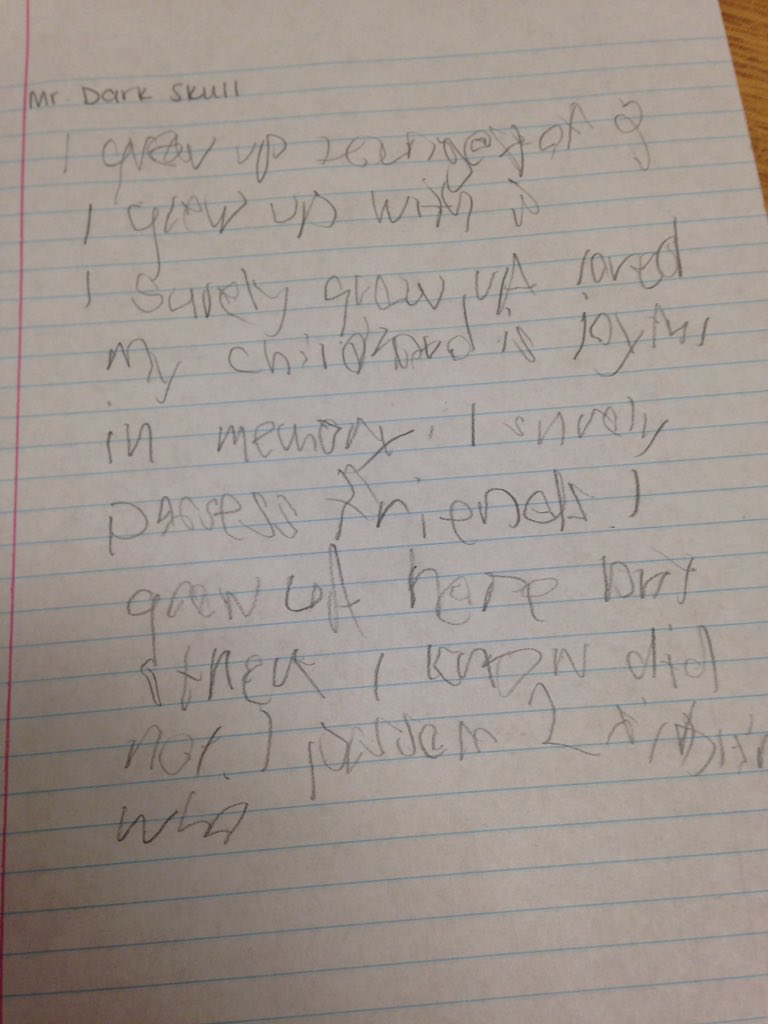 Mr Dark Skull
I grew up youngest of 6
I grew up with
I surely grew up loved
my childhood is joyful
in memory. I surely
possess friends. I
grew up here but
I know did
not. I possess 2
who